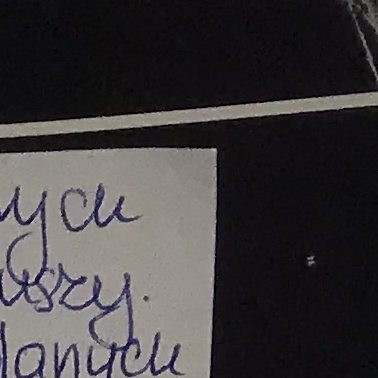 ych
uszy.
łanych